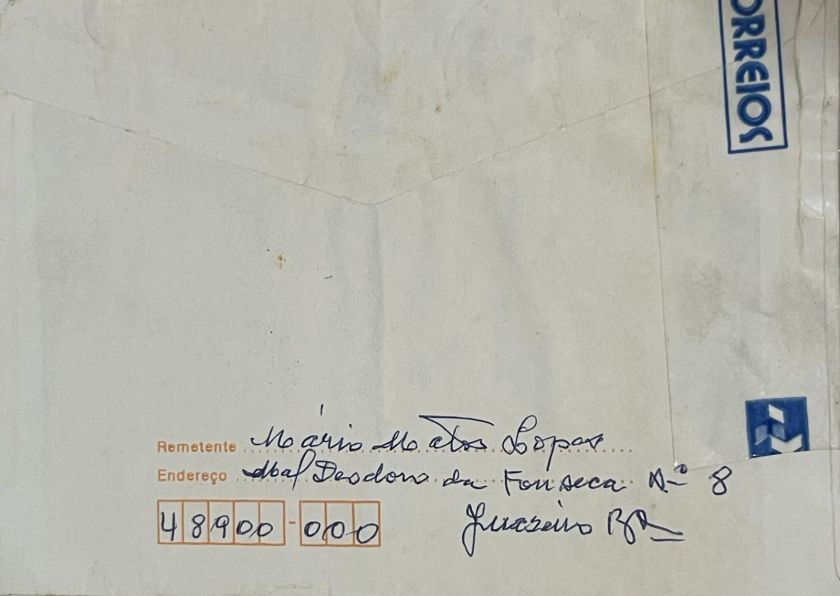 ORREIOS
Remetente Mário Matos Lopes
Endereço Mal Deodoro da Fonseca Nº 8
48900-000 Juazeiro BA